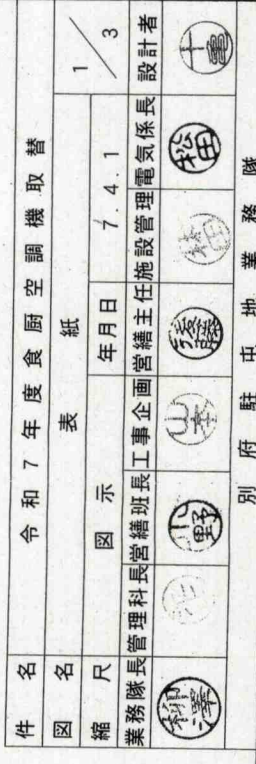 件名 令和7年度食厨空調機取替
図名 表紙 1/3
縮尺 図示 年月日 7.4.1
業務隊長 管理科長 営繕班長 工事企画 営繕主任 施設管理 電気係長 設計者
柳澤 小野 山本 後藤 松田
別府駐屯地業務隊